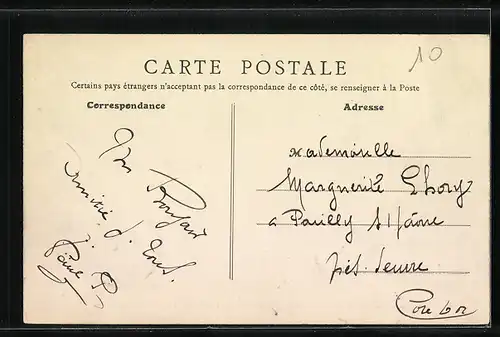 10
CARTE POSTALE
Certains pays étrangers n'acceptant pas la correspondance de ce côté, se renseigner à la Poste
Correspondance
Adresse
Un Bonjour
d. tous.
Mademoiselle
Marguerite Thory
a Pouilly s/ Saône
près Seurre
Côte d'or